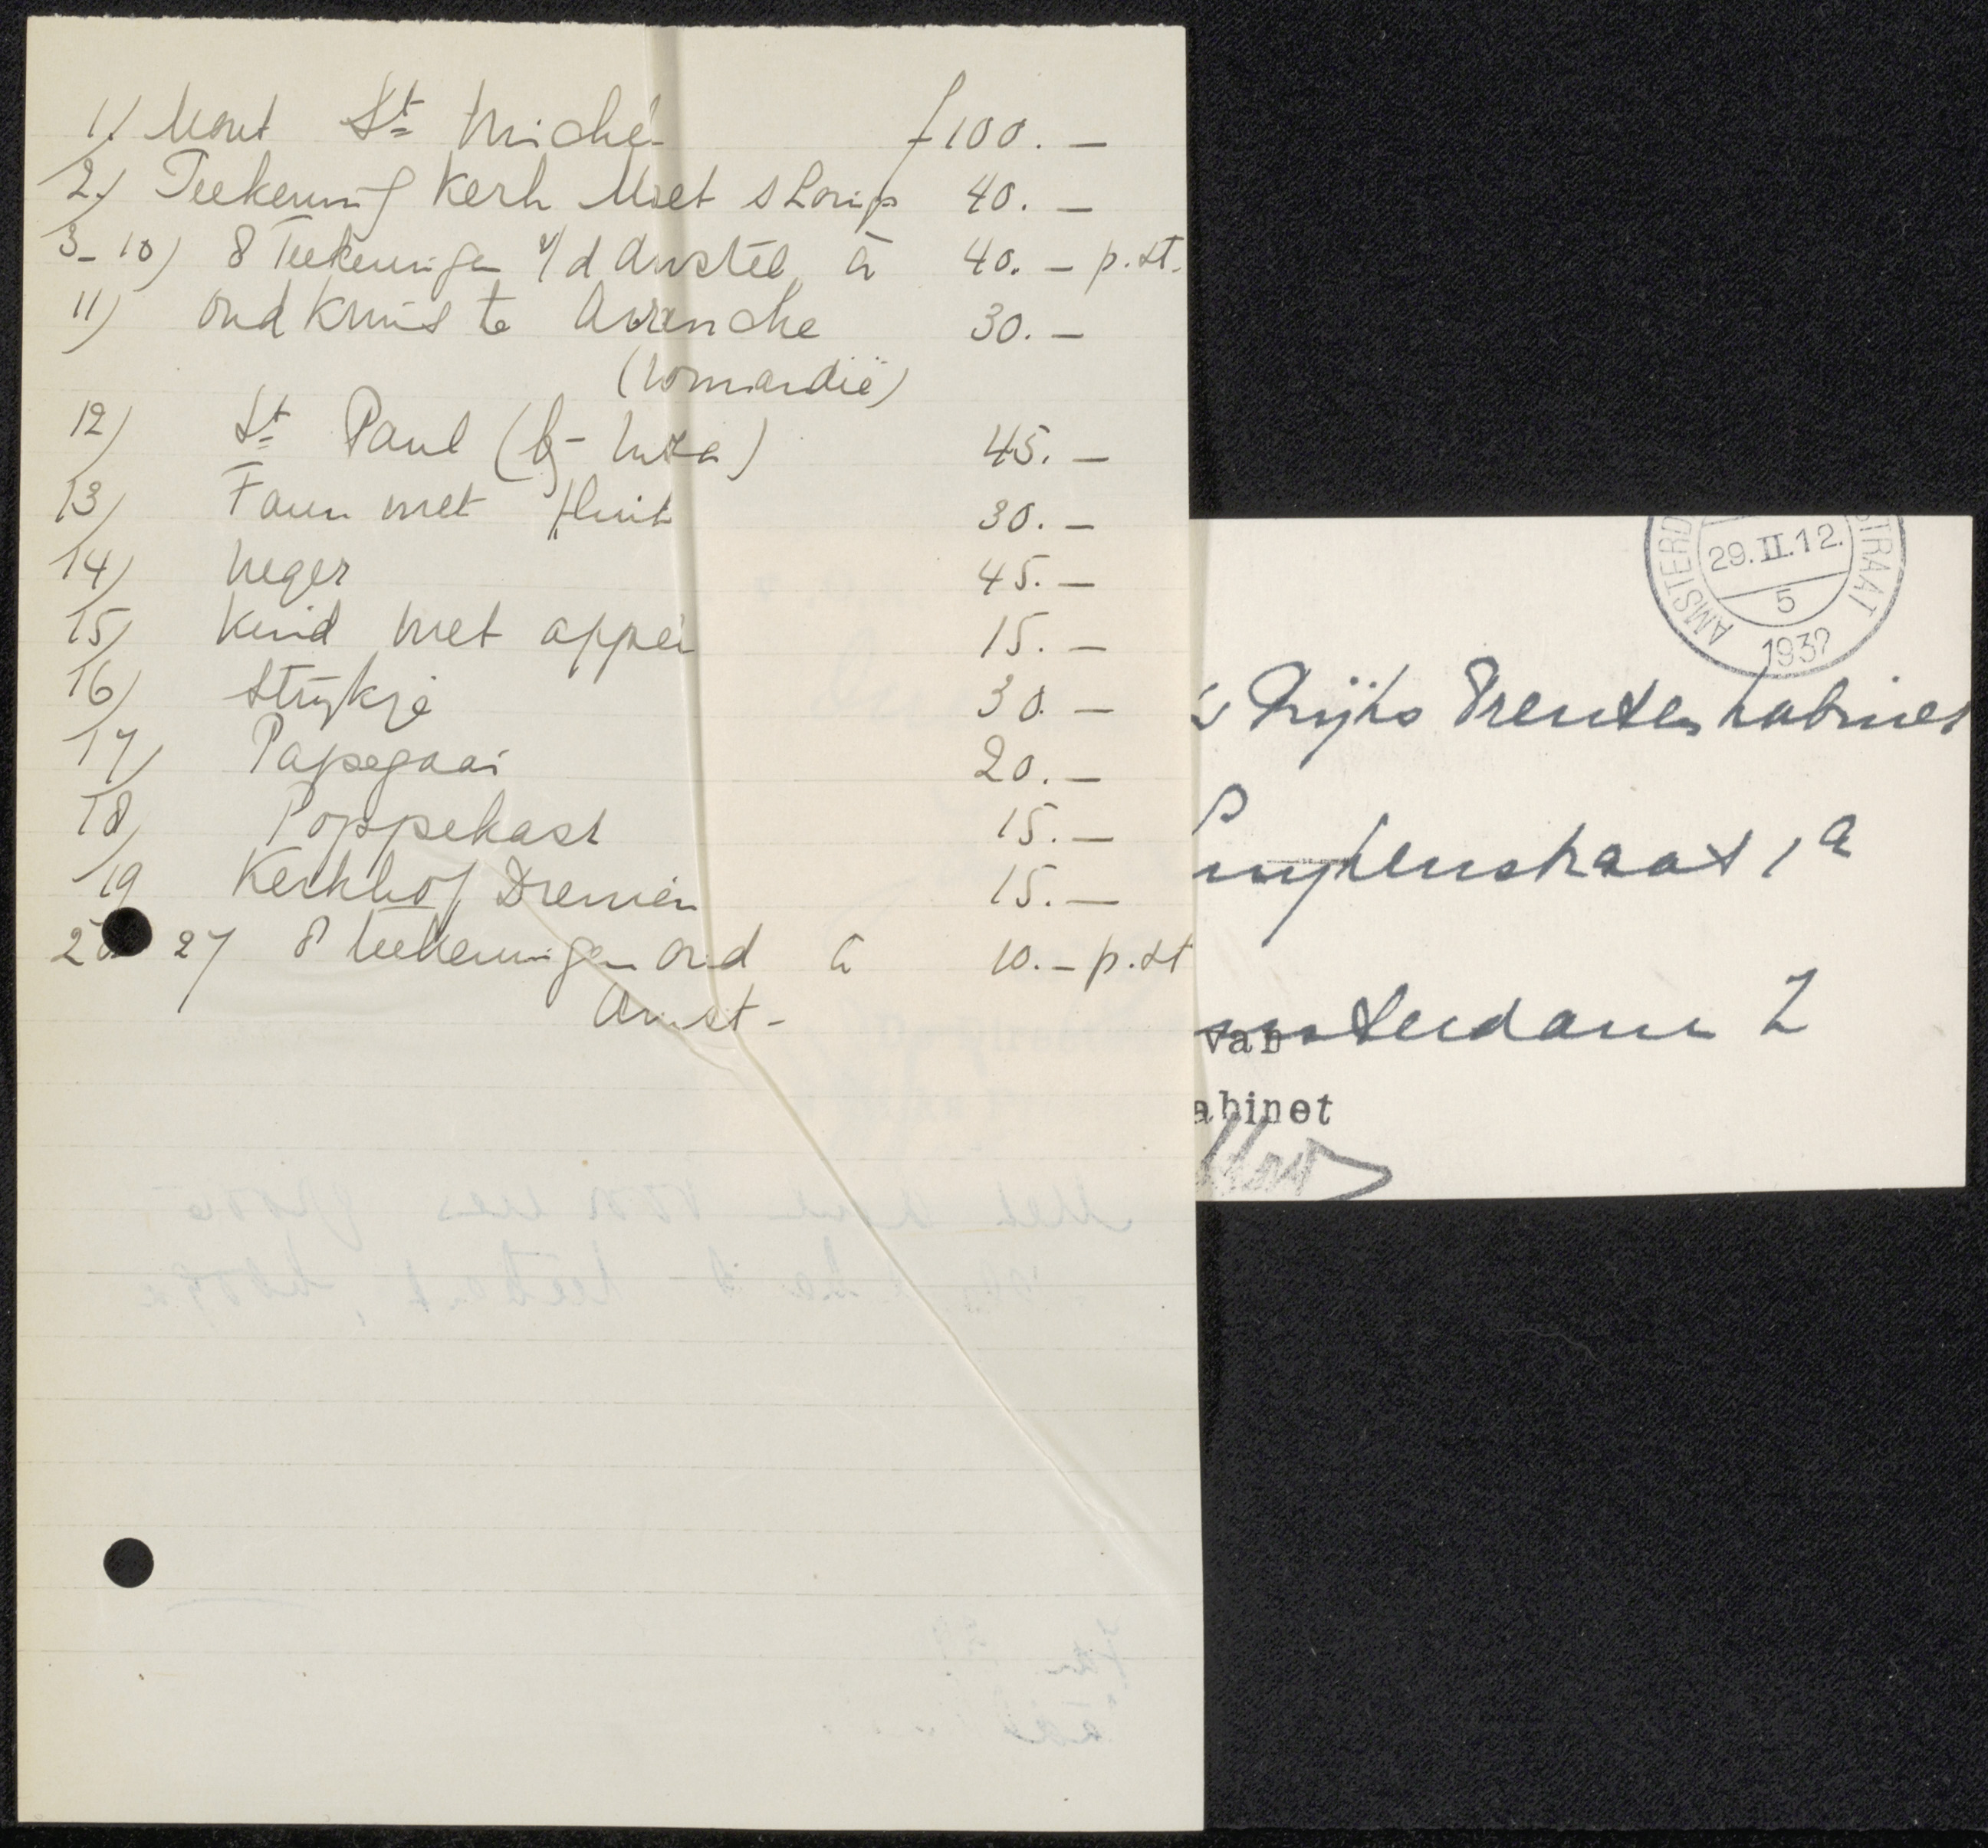 1) Mont St Michel f 100. —
2.) Teekening Kerk met sloup 40. —
3-10) 8 Teekeningen v/d Amstel à 40. — p. st.
11) oud Kruis te Avranche 30. —
(Normandië)
12) St Paul (bij- Nice) 45. —
13) Faun met fluit 30. —
14) Neger 45. —
15) Kind met appel 15. —
16) Strijkje 30. —
17) Papegaai 20. —
18) Poppekast 15. —
19 Kerkhof Diemen 15. —
20 27 8 teekeningen oud à 10. — p. st
Amst-
AMSTERD STRAAT
29.II.12.
5
1932
Rijks Prenten kabinet
straat 1a
sterdam Z
van
abinet